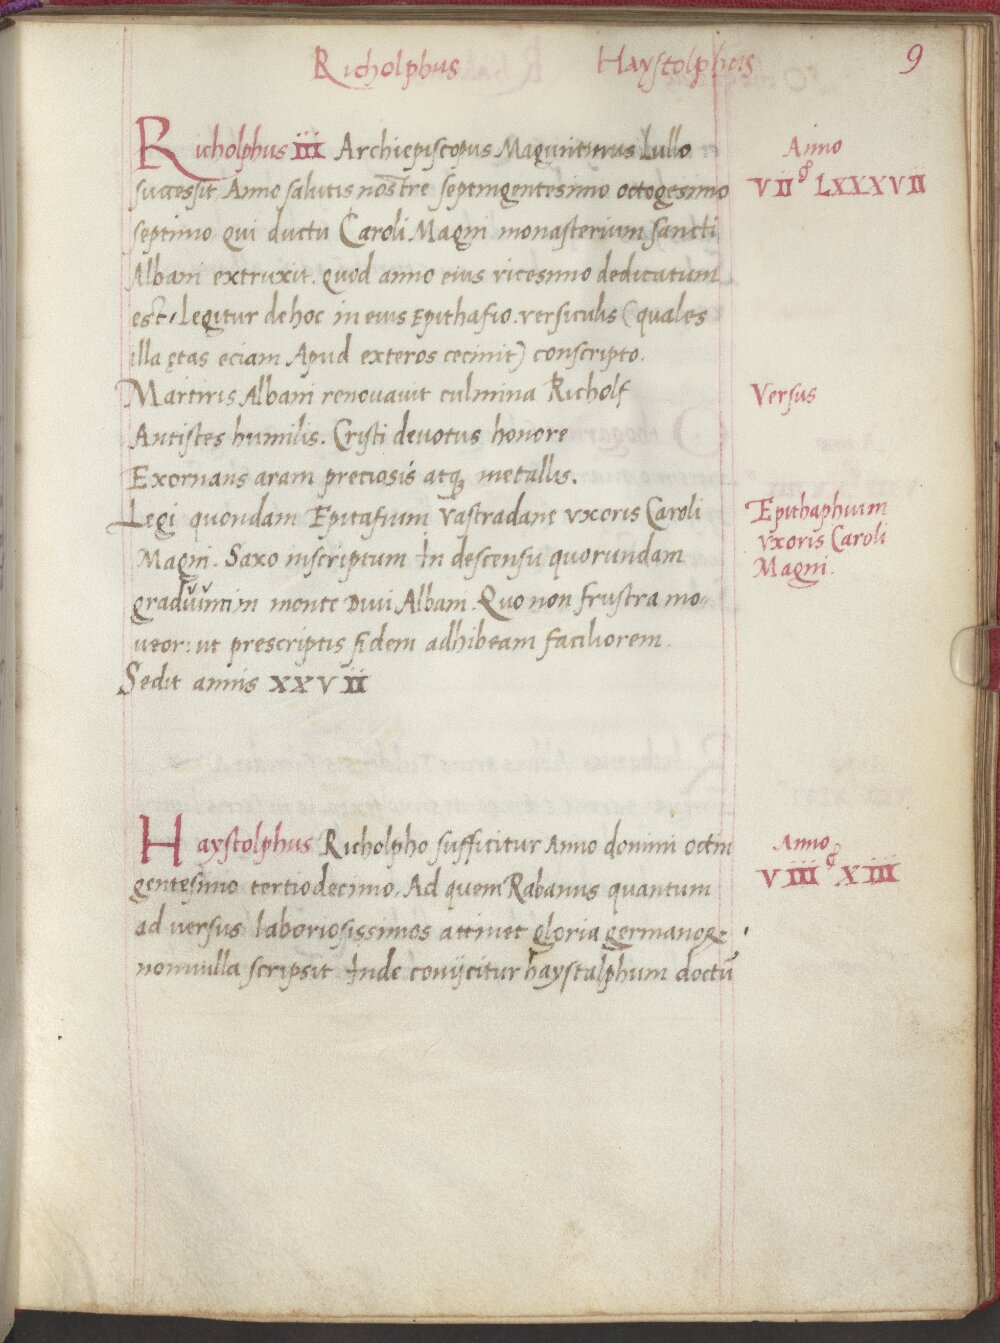 Richolphus Haystolphus 9
Richolphus III Archiepiscopus Maguntinus Lullo
successit Anno salutis nostre septingentesimo octogesimo
septimo qui ductu Caroli Magni monasterium sancti
Albani extruxit. quod anno eius vicesimo dedicatum
est, Legitur de hoc in eius Epithafio. versiculis (quales
illa ętas eciam Apud exteros cecinit) conscripto.
Martiris Albani renouauit culmina Richolf
Antistes humilis. Cristi deuotus honore
Exornans aram preciosis atq; metallis.
Legi quondam Epitafium Vastradane vxoris Caroli
Magni. Saxo inscriptum In descensu quorundam
graduum in monte Diui Albani. Quo non frustra mo-
ueor: ut prescriptis fidem adhibeam faciliorem.
Sedit annis XXVII
Anno
VIIᶜ LXXXVII
Versus
Epithaphium
vxoris Caroli
Magni.
Haystolphus Richolpho sufficitur Anno domini octin
gentesimo tertiodecimo. Ad quem Rabanus quantum
ad uersus laboriosissimos attinet gloria germanoꝝ
nonnulla scripsit Inde conijcitur haystulphum doctū
Anno
VIIIᶜ XIII